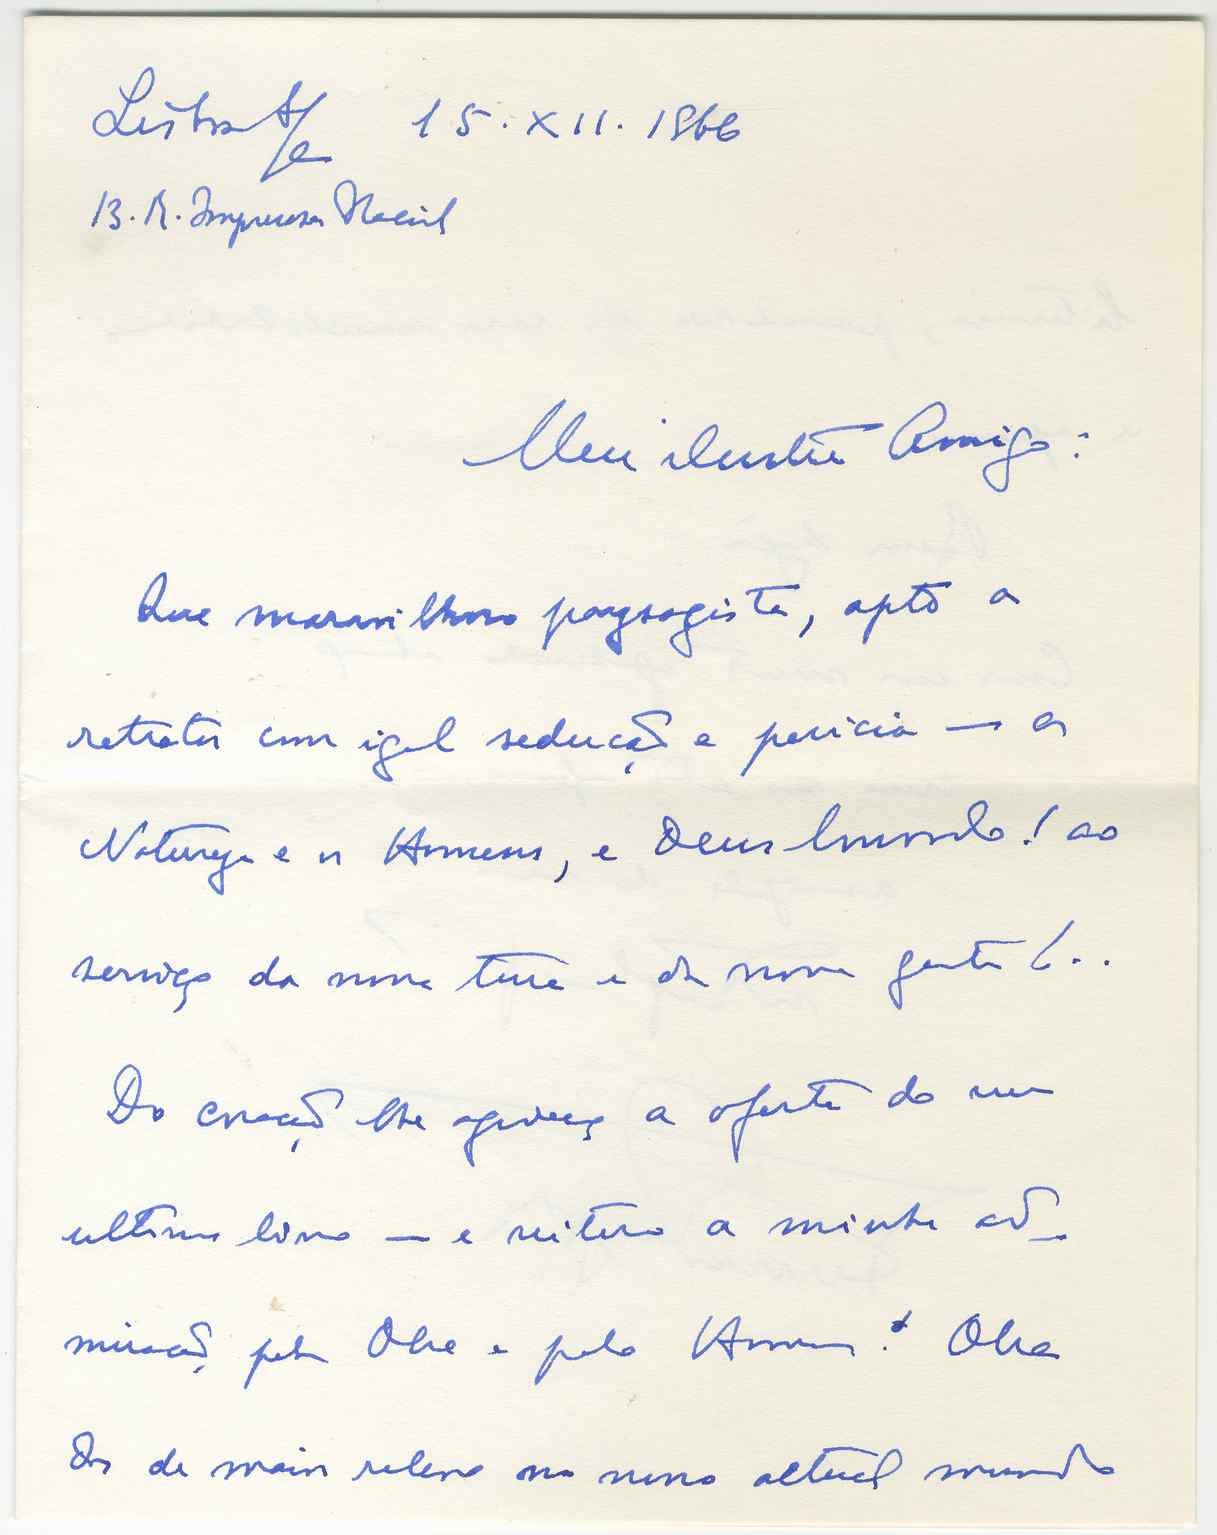 Lisboa 15.XII.1966
13. R. Imprensa Nacional
Meu ilustre Amigo:
Que maravilhoso paysagista, apto a
retratar com igual sedução e pericia — a
Natureza e os Homens, e Deus louvado! ao
serviço da nossa terra e da nossa gente!..
Do coração lhe agradeço a oferta do seu
ultimo livro — e reitero a minha ad-
miração pela Obra e pelo Homem! Obra
das de maior relevo no nosso actual mundo